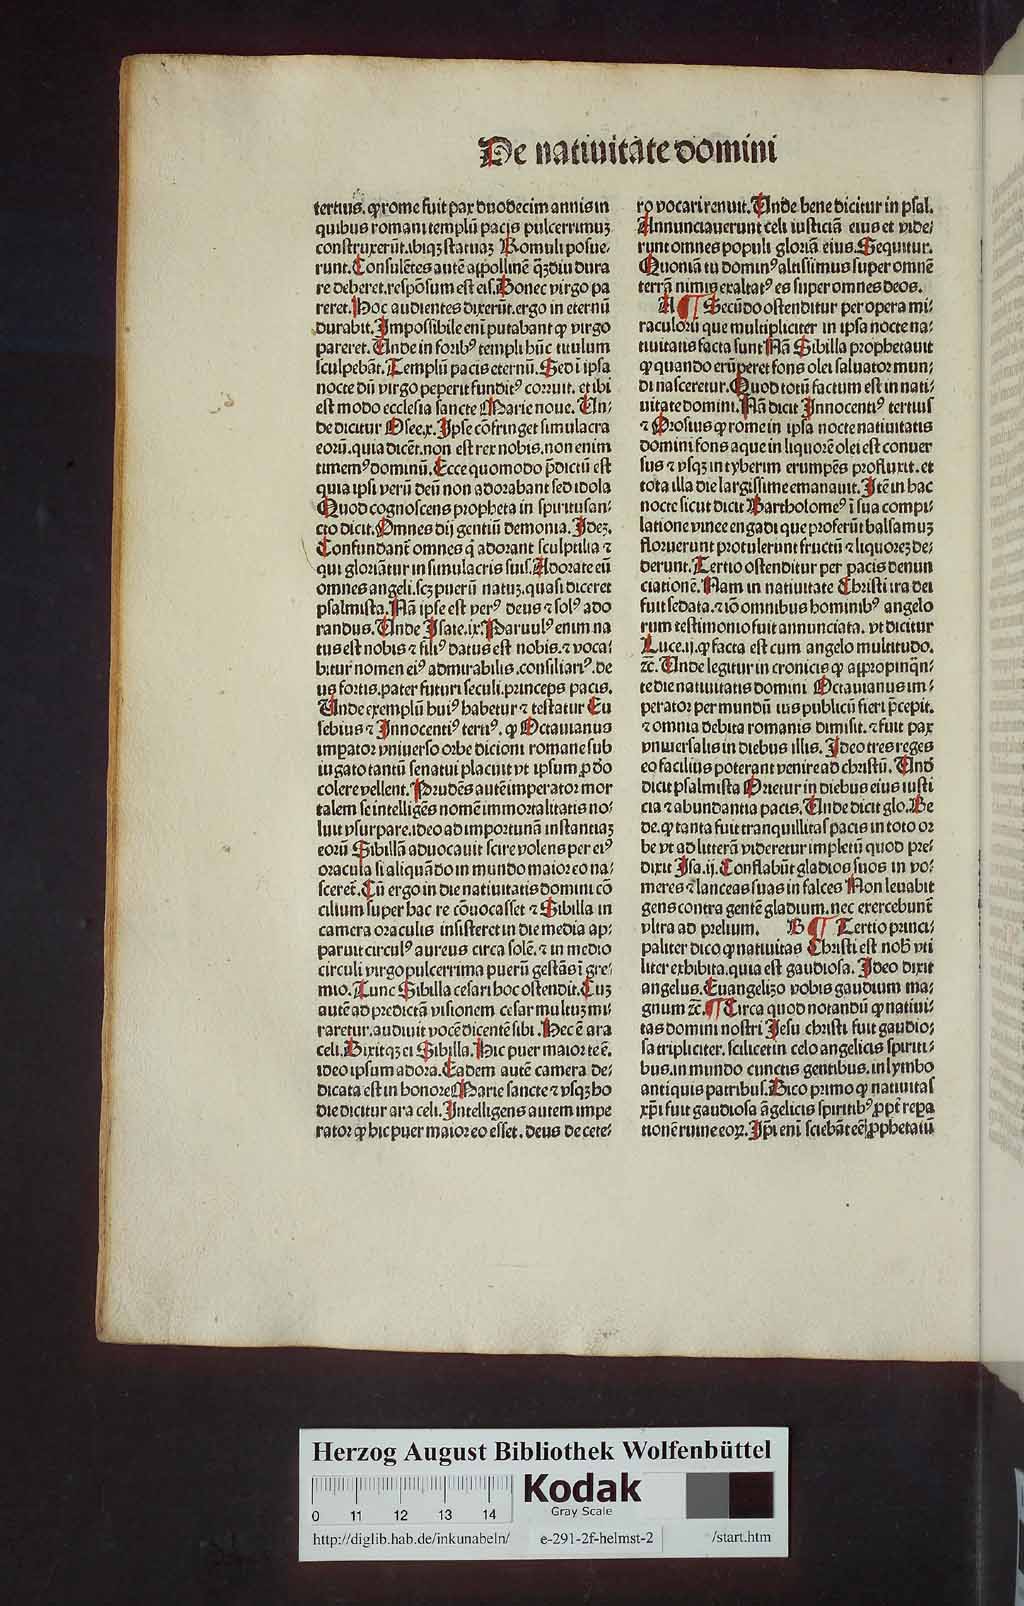 De natiuitate domini
tertius. ꝙ rome fuit pax duodecim annis in
quibus romani templū pacis pulcerrimuꝫ
construxerūt. ibiqꝫ statuaꝫ Romuli posue⸗
runt. Consulētes autē appollinē q̄ꝫdiu dura
re deberet. respōsum est eis. Donec virgo pa
reret. Hoc audientes dixerūt. ergo in eternū
durabit. Impossibile enī putabant ꝙ virgo
pareret. Unde in foribꝰ templi hūc titulum
sculpebāt. Templū pacis eternū. Sed ī ipsa
nocte dū virgo peperit funditꝰ corruit. et ibi
est modo ecclesia sancte Marie noue. Un⸗
de dicitur Osee.x. Ipse cōfringet simulacra
eorū. quia dicēt. non est rex nobis. non enim
timemꝰ dominū. Ecce quomodo p̄dictū est
quia ipsi verū deū non adorabant sed idola
Quod cognoscens propheta in spiritu san⸗
cto dicit. Omnes dij gentiū demonia. Ideꝫ.
Confundant̄ omnes q̄ adorant sculptilia ⁊
qui gloriātur in simulacris suis. Adorate eū
omnes angeli. scꝫ puerū natuꝫ. quasi diceret
psalmista. Nā ipse est verꝰ deus ⁊ solꝰ ado
randus. Unde Isaie.ix. Paruulꝰ enim na
tus est nobis ⁊ filiꝰ datus est nobis. ⁊ voca⸗
bitur nomen eiꝰ admirabilis. consiliariꝰ. de
us fortis. pater futuri seculi. princeps pacis.
Unde exemplū huiꝰ habetur ⁊ testatur Eu
sebius ⁊ Innocentiꝰ terciꝰ. ꝙ Octauianus
imperator vniuerso orbe dicioni romane sub
iugato tantū senatui placuit vt ipsum ꝓ deo
colere vellent. Prudēs autē imperator mor
talem se intelligēs nomē immortalitatis no⸗
luit vsurpare. ideo ad importunā instantiaꝫ
eorū Sibillā aduocauit scire volens per eiꝰ
oracula si aliquādo in mundo maior eo na⸗
sceret̄. Cū ergo in die natiuitatis domini cō
cilium super hac re cōuocasset ⁊ Sibilla in
camera oraculis insisteret in die media ap⸗
paruit circulꝰ aureus circa solē. ⁊ in medio
circuli virgo pulcerrima puerū gestās ī gre⸗
mio. Tunc Sibilla cesari hoc ostendit. Cuꝫ
autē ad predictā visionem cesar multuꝫ mi⸗
raretur. audiuit vocē dicentē sibi. Hec ē ara
celi. Dixitqꝫ ei Sibilla. Hic puer maior te ē.
ideo ipsum adora. Eadem autē camera de⸗
dicata est in honore Marie sancte ⁊ vsqꝫ ho
die dicitur ara celi. Intelligens autem impe
rator ꝙ hic puer maior eo esset. deus de cete⸗
ro vocari renuit. Unde bene dicitur in psal.
Annunciauerunt celi iusticiā eius et vide⸗
runt omnes populi gloriā eius. Sequitur.
Quoniā tu dominꝰ altissimus super omnē
terrā nimis exaltatꝰ es super omnes deos.
A ¶ Secūdo ostenditur per opera mi⸗
raculorū que multipliciter in ipsa nocte na⸗
tiuitatis facta sunt Nā Sibilla prophetauit
ꝙ quando erūperet fons olei saluator mun⸗
di nasceretur. Quod totū factum est in nati⸗
uitate domini. Nā dicit Innocentiꝰ tertius
⁊ Orosius ꝙ rome in ipsa nocte natiuitatis
domini fons aque in liquorē olei est conuer
sus ⁊ vsqꝫ in tyberim erumpēs profluxit. et
tota illa die largissime emanauit. Itē in hac
nocte sicut dicit Bartholomeꝰ ī sua compi⸗
latione vinee engadi que proferūt balsamuꝫ
floruerunt protulerunt fructū ⁊ liquoreꝫ de⸗
derunt. Tertio ostenditur per pacis denun
ciationē. Nam in natiuitate Christi ira dei
fuit sedata. ⁊ iō omnibus hominibꝰ angelo
rum testimonio fuit annunciata. vt dicitur
Luce.ij. ꝙ facta est cum angelo multitudo.
ꝛc̄. Unde legitur in cronicis ꝙ appropinq̄n⸗
te die natiuitatis domini Octauianus im⸗
perator per mundū ius publicū fieri p̄cepit.
⁊ omnia debita romanis dimisit. ⁊ fuit pax
vniuersalis in diebus illis. Ideo tres reges
eo facilius poterant venire ad christū. Und̄
dicit psalmista Orietur in diebus eius iusti
cia ⁊ abundantia pacis. Unde dicit glo. Be
de. ꝙ tanta fuit tranquillitas pacis in toto or
be vt ad litterā videretur impletū quod pre⸗
dixit Isa.ij. Conflabūt gladios suos in vo⸗
meres ⁊ lanceas suas in falces Non leuabit
gens contra gentē gladium. nec exercebunt̄
vltra ad prelium. B ¶ Tertio princi⸗
paliter dico ꝙ natiuitas Christi est nob̄ vti
liter exhibita. quia est gaudiosa. Ideo dixit
angelus. Euangelizo vobis gaudium ma⸗
gnum ꝛc̄. ¶ Circa quod notandū ꝙ natiui⸗
tas domini nostri Jesu christi fuit gaudio⸗
sa tripliciter. scilicet in celo angelicis spiriti⸗
bus. in mundo cunctis gentibus. in lymbo
antiquis patribus. Dico primo ꝙ natiuitas
xp̄i fuit gaudiosa āgelicis spiritibꝰ ꝓpt̄ repa
tionē ruine eoꝝ. Ip̄i enī sciebāt eē ꝓphetatū
Herzog August Bibliothek Wolfenbüttel
0 11 12 13 14
Kodak
Gray Scale
http://diglib.hab.de/inkunabeln/ e-291-2f-helmst-2 /start.htm